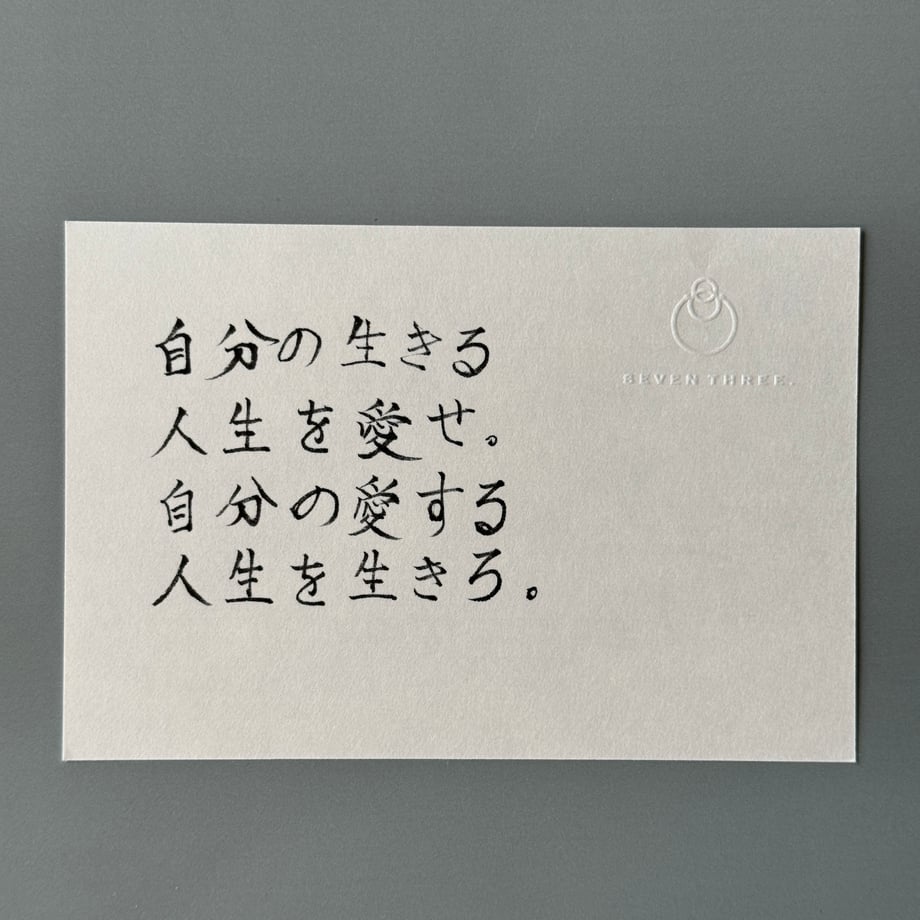 自分の生きる
人生を愛せ。
自分の愛する
人生を生きろ。
SEVEN THREE.